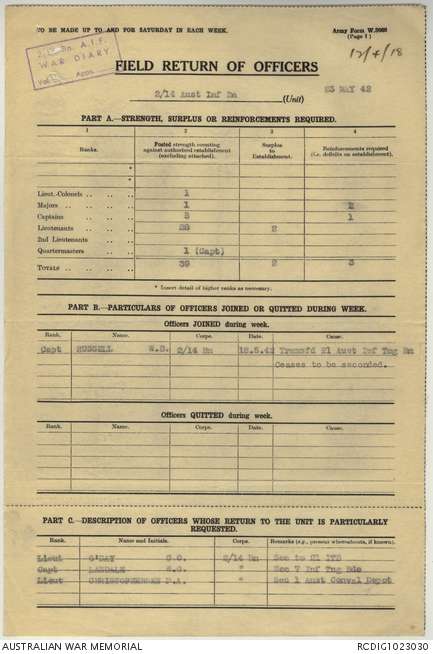 TO BE MADE UP TO AND FOR SATURDAY IN EACH WEEK.
Army Form W.3008
(Page 1)
2/14 Bn. A.I.F.
WAR DIARY
12/4/18
FIELD RETURN OF OFFICERS
2/14 Aust Inf Bn (Unit) 23 MAY 42
PART A.—STRENGTH, SURPLUS OR REINFORCEMENTS REQUIRED.
1 2 3 4
Ranks. Posted strength counting against authorised establishment (excluding attached). Surplus to Establishment. Reinforcements required (i.e. deficits on establishment).
*
*
Lieut.-Colonels .. .. .. 1
Majors .. .. .. .. 1
Captains .. .. .. 1
Lieutenants .. .. .. 28 2
2nd Lieutenants .. ..
Quartermasters .. .. 1 (Capt)
TOTALS .. .. .. .. 39 2 3
* Insert detail of higher ranks as necessary.
PART B.—PARTICULARS OF OFFICERS JOINED OR QUITTED DURING WEEK.
Officers JOINED during week.
Rank. Name. Corps. Date. Cause.
Capt RUSSELL W.D. 2/14 Bn 18.5.42 Transfd 21 Aust Inf Tng Bn
Ceases to be seconded.
Officers QUITTED during week.
Rank. Name. Corps. Date. Cause.
PART C.—DESCRIPTION OF OFFICERS WHOSE RETURN TO THE UNIT IS PARTICULARLY
REQUESTED.
Rank. Name and Initials. Corps. Remarks (e.g., present whereabouts, if known).
Lieut O'DAY G.O. 2/14 Bn Sec to 21 ITB
Capt LANDALE W.G. " Sec 7 Inf Tng Bde
Lieut P.A. " Sec 1 Aust Conval Depot
AUSTRALIAN WAR MEMORIAL RCDIG1023030